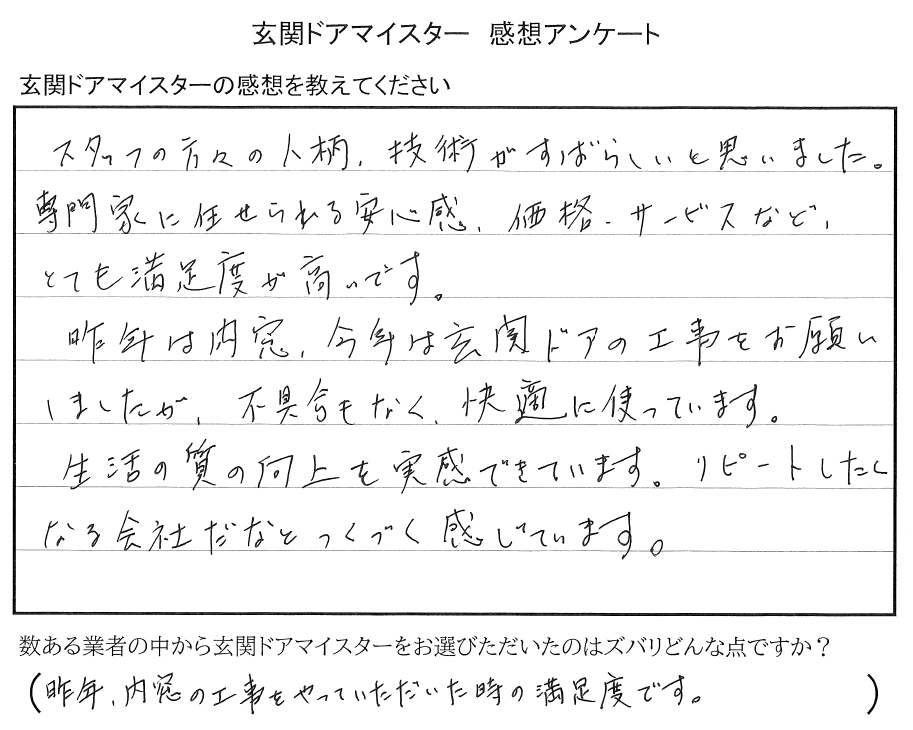 玄関ドアマイスター　感想アンケート
玄関ドアマイスターの感想を教えてください
スタッフの方々の人柄、技術がすばらしいと思いました。
専門家に任せられる安心感、価格・サービスなど、
とても満足度が高いです。
昨年は内窓、今年は玄関ドアの工事をお願い
しましたが、不具合もなく、快適に使っています。
生活の質の向上を実感できています。リピートしたく
なる会社だなとつくづく感じています。
数ある業者の中から玄関ドアマイスターをお選びただいたのはズバリどんな点ですか？
(昨年、内窓の工事をやっていただいた時の満足度です。)